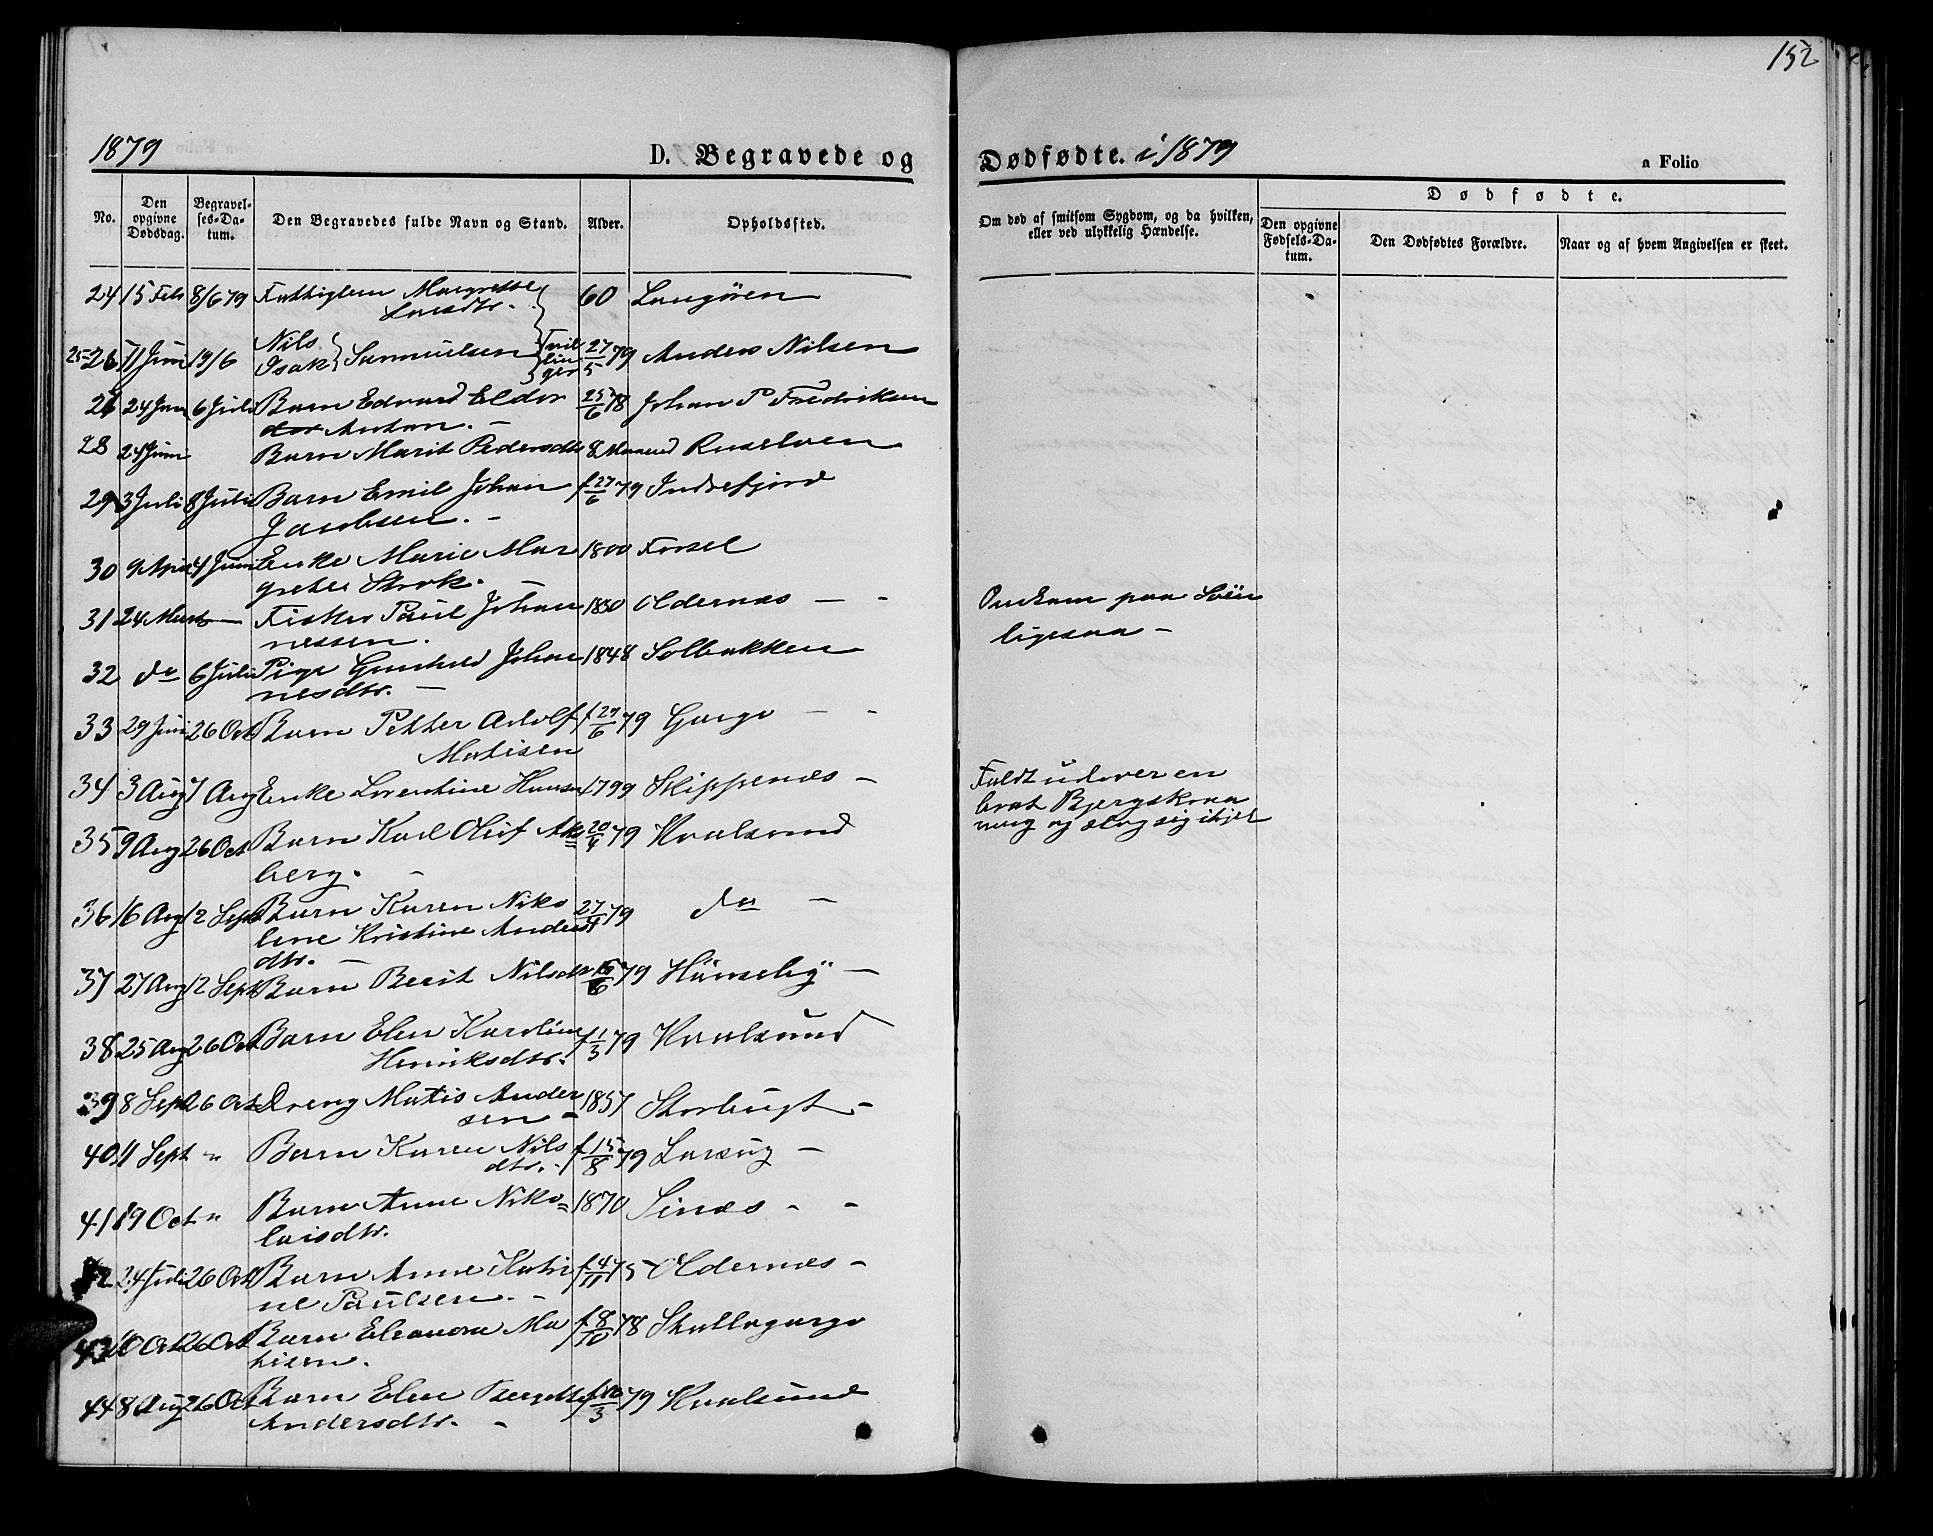 152
1879 D. Begravede og Dødfødte. i 1879 a Folio
No. Den opgivne Dødsdag. Begravelses-Datum. Den Begravedes fulde Navn og Stand. Alder. Opholdssted. Om død af smitsom Sygdom, og da hvilken, eller ved ulykkelig Hændelse. Dødfødte. Den opgivne Fødsels-Datum. Den Dødfødtes Forældre. Naar og af hvem Angivelsen er skeet.
24 15 Feb 8/6 79 Fattiglem Margrethe 60 Langören
Larsdtr.
25-26 11 Juni 19/6 Nils Isak Samuelsen Tvillinger 27/5 79 Anders Nilsen
24 Juni 6 Juli Barn Edvard Eldor 25/6 78 Johan P Fredriksen
Anton. -
28 24 Juni Barn Marit Pedersdtr 8 Maaned
29 3 Juli 8 Juli Barn Emil Johan f 27/6 79 Indrefjord
Jacobsen. -
30 9 April 4 Juni Enke Marie Mar 1800 Forsel
grethe
31 24 Marts Fisker Paul Johan 1850 Oldernæs - -
nessen. Omkom paa
32 do 6 Juli Pige Gunhild Johan 1848 Solbakken
nesdtr. -
33 29 Juni 26 Oct Barn Petter Adolf f 29/6 79 Gargo - -
Matisen
34 3 Aug 7 Aug Enke Lorentine Hansen 1799 Skippernæs -
Faldt udover en
brat Bjergskraa
ning og slog sig ihjel
35 9 Aug 26 Oct Barn Karl Oluf Ak= 20/4 79 Kvalsund
berg. -
36 16 Aug 12 Sept Barn Karen Niko 27/4 79 do -
line Kristine Anders
dtr. -
37 27 Aug 12 Sept Barn Berit Nilsdtr 79 -
38 25 Aug 26 Oct Barn Elen Karoline f 1/3 79 Kvalsund
Henriksdtr.
39 8 Sept 26 Oct Dreng Matis Ander 1857 Storbugt -
sen -
40 11 Sept " Barn Karen Nils f 15/8 79 -
dtr. -
41 19 Oct " Barn Anne Niko= 1870 - -
laisdtr.
42 24 Juli 26 Oct Barn Anne Katri f 4/11 75 Oldernæs -
ne Paulsen. -
43 10 Oct 26 Oct Barn Eleanora Ma f 8/10 78 Skallogargo
tisen.
44 8 Aug 26 Oct Barn Elen Bergitte f 10/3 79 Kvalsund
Andersdtr. -